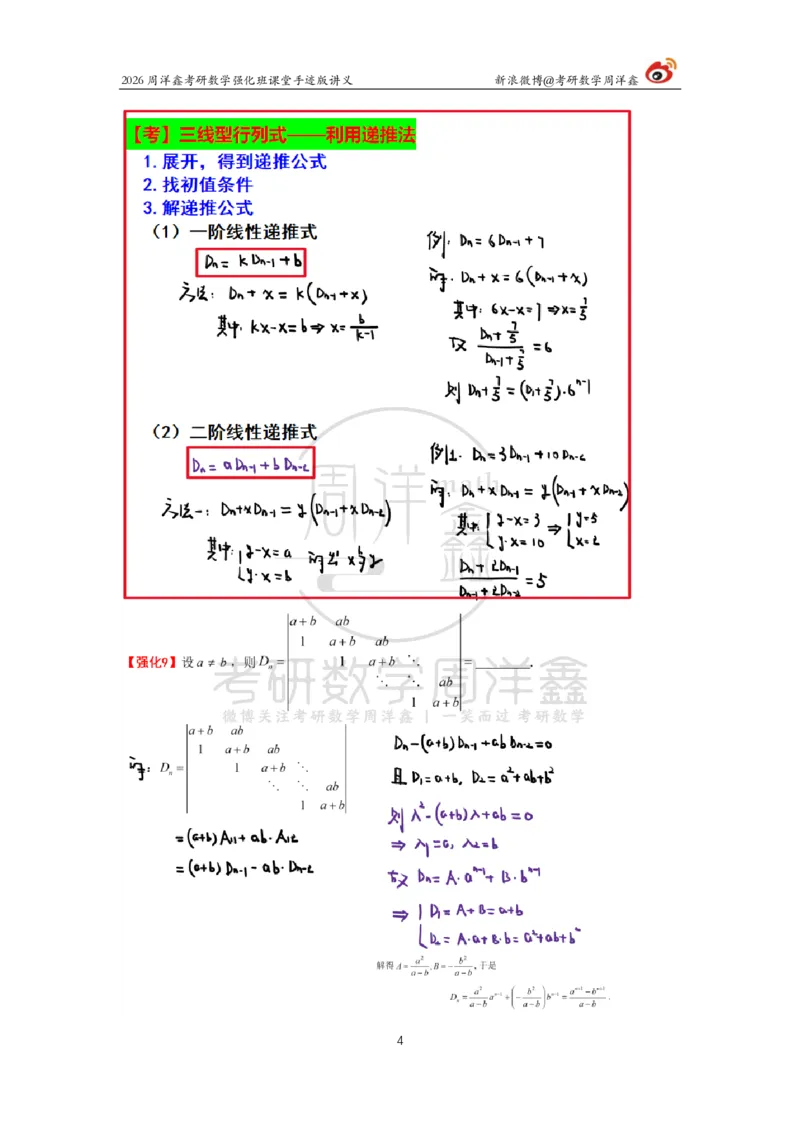 2026周洋鑫考研数学强化班课堂手迹版讲义 新浪微博@考研数学周洋鑫
【考】三线型行列式——利用递推法
1.展开，得到递推公式
2.找初值条件
3.解递推公式
（1）一阶线性递推式
Dn = kDn-1 + b
方法：Dn + x = k(Dn-1 + x)
其中：kx-x=b⇒x=b/(k-1)
例：Dn = 6Dn-1 + 7
解：Dn + x = 6(Dn-1 + x)
其中：6x-x=7⇒x=7/5
又 (Dn+7/5)/(Dn-1+7/5) = 6
则 Dn+7/5 = (D1+7/5)·6^(n-1)
（2）二阶线性递推式
Dn = aDn-1 + bDn-2
方法一：Dn+xDn-1 = y(Dn-1+xDn-2)
其中：{y-x=a
y·x=b 解出 x与y
例1. Dn=3Dn-1+10Dn-2
解：Dn+xDn-1 = y(Dn-1+xDn-2)
其中：{y-x=3 ⇒ {y=5
y·x=10 x=2
(Dn+2Dn-1)/(Dn-1+2Dn-2) = 5
【强化9】设 a ≠ b，则 Dn =
| a+b ab
1 a+b ab
1 a+b ⋱
⋱ ⋱ ab
1 a+b | = ________.
解：Dn =
| a+b ab
1 a+b ab
1 a+b ⋱
⋱ ⋱ ab
1 a+b |
=(a+b)A11+ab·A12
=(a+b)Dn-1-ab·Dn-2
Dn-(a+b)Dn-1+abDn-2=0
且 D1=a+b, D2=a²+ab+b²
则 λ²-(a+b)λ+ab=0
⇒ λ1=a, λ2=b
故 Dn=A·a^(n-1)+B·b^(n-1)
⇒ {D1=A+B=a+b
D2=A·a+B·b=a²+ab+b²
解得 A=a²/(a-b), B=-b²/(a-b)，于是
Dn = a²/(a-b) a^(n-1) + (-b²/(a-b)) b^(n-1) = (a^(n+1)-b^(n+1))/(a-b).
周洋鑫
math
考研数学周洋鑫
微博关注考研数学周洋鑫 | 一笑而过 考研数学
4